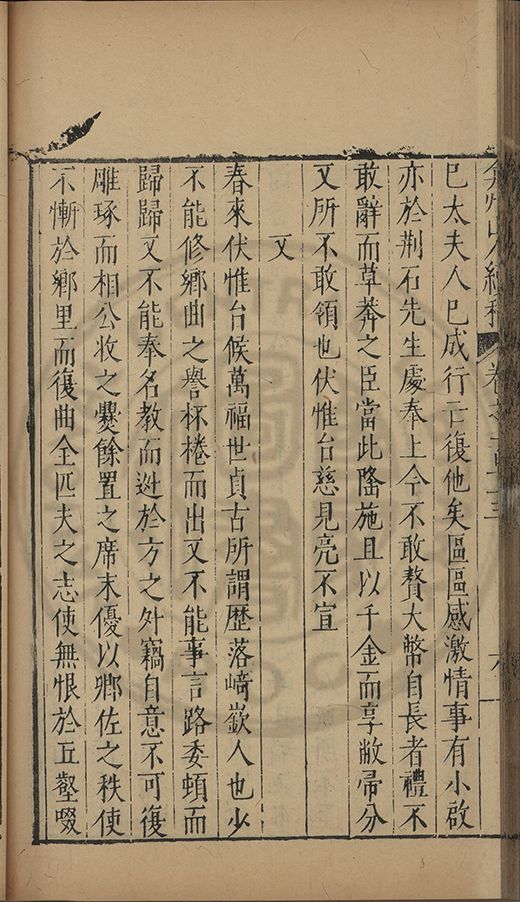 弇州山人續稿 卷之一百七十三 六
已太夫人已成行亡復他矣區區感激情事有小啟
亦於荆石先生處奉上今不敢贅大幣自長者禮不
敢辭而草莽之臣當此隆施且以千金而享敝帚分
又所不敢領也伏惟台慈見亮不宣
又
春來伏惟台候萬福世貞古所謂歷落崎嶔人也少
不能修鄉曲之譽杯棬而出又不能事言路委頓而
歸歸又不能奉名教而迯於方之外竊自意不可復
雕琢而相公收之爨餘置之席末優以卿佐之秩使
不慚於鄉里而復曲全匹夫之志使無恨於丘壑啜